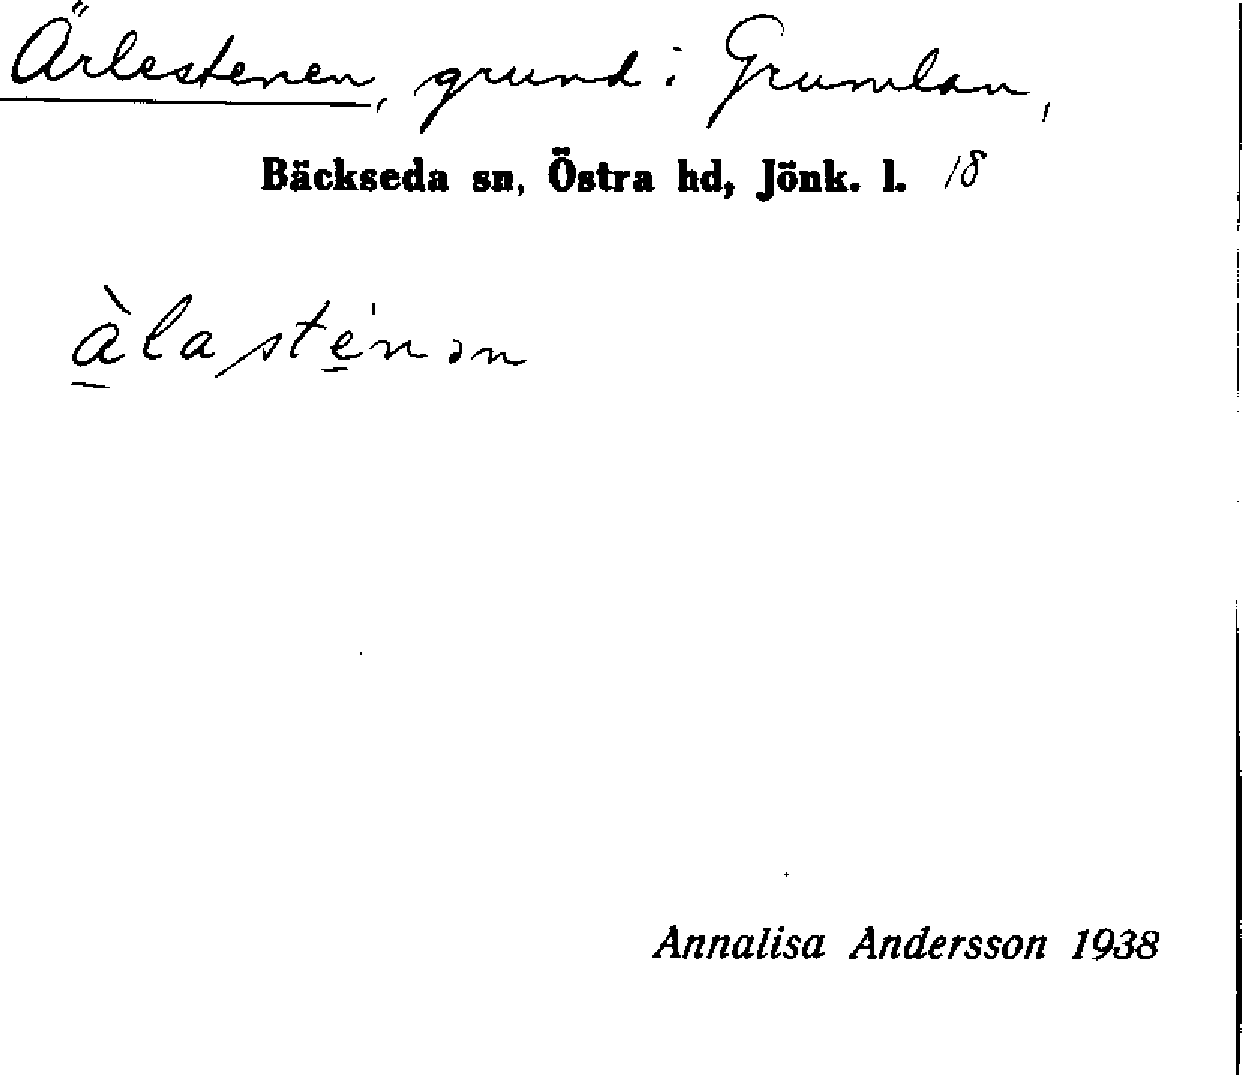 Ärlestenen, grund i Grumlan,
Bäckseda sn, Östra hd, Jönk. l. 18
àlasténən
Annalisa Andersson 1938